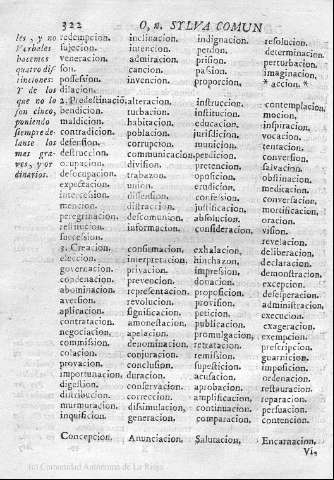 322 O, n. SYLVA COMUN
les, y no redempcion, inclinacion, indignacion, resolucion.
Verbales sujecion, intencion, perdon, determinacion.
hacemos veneracion, admiracion, prision, perturbacion.
quatro dis- son, cancion, pasion, imaginacion,
tinciones: possession, invencion, proporcion, * accion. *
Y de los dilacion.
que no lo 2. Predestinaciõ, alteracion, instruccion, contemplacion,
son cinco, bendicion, turbacion, institucion, mocion,
poniendo maldicion, habitacion, educacion, inspiracion,
siempre de- contradicion, poblacion, jurisdicion, vocacion,
lante los defension, corrupcion, municion, tentacion,
mas gra- destruccion, comunicacion, perdicion, conversion,
ves, y or ocupacion, division, pretencion, salvacion,
dinarios. desocupacion, trabazon, oposicion, obstinacion,
expectacion, union, erudicion, meditacion,
intercession, dissension, confession, conversacion,
mencion, distraccion, justificacion, mortificacion,
peregrinacion, descomunion, absolucion, oracion,
restitucion, informacion, consideracion, vision.
succession. revelacion.
3. Creacion, consumacion, exhalacion, deliberacion,
eleccion, interpretacion, hinchazon, declaracion.
governacion, privacion, impression, demonstracion.
condenacion, prevencion, donacion, excepcion.
abominacion, representacion, proposicion, desesperacion,
aversion, revolucion, provision, administracion,
aplicacion, significacion, peticion, execucion.
contratacion, amonestacion, publicacion, exageracion.
negociacion, apelacion, promulgacion, exempcion.
commission, denominacion, retratacion, prescripcion.
colacion, conjuracion, remission, guarnicion.
provacion, conclusion, supersticion, imposicion.
importunacion, duracion, acusacion, ordenacion.
digestion, conservacion, aprobacion, restauracion,
distribucion, correccion, amplificacion, reparacion,
murmuracion, dissimulacion, continuacion, persuasion,
inquisicion, generacion, comparacion, contencion.
Concepcion, Anunciacion, Salutacion, Encarnacion,
Vi,
(c) Comunidad Autónoma de La Rioja